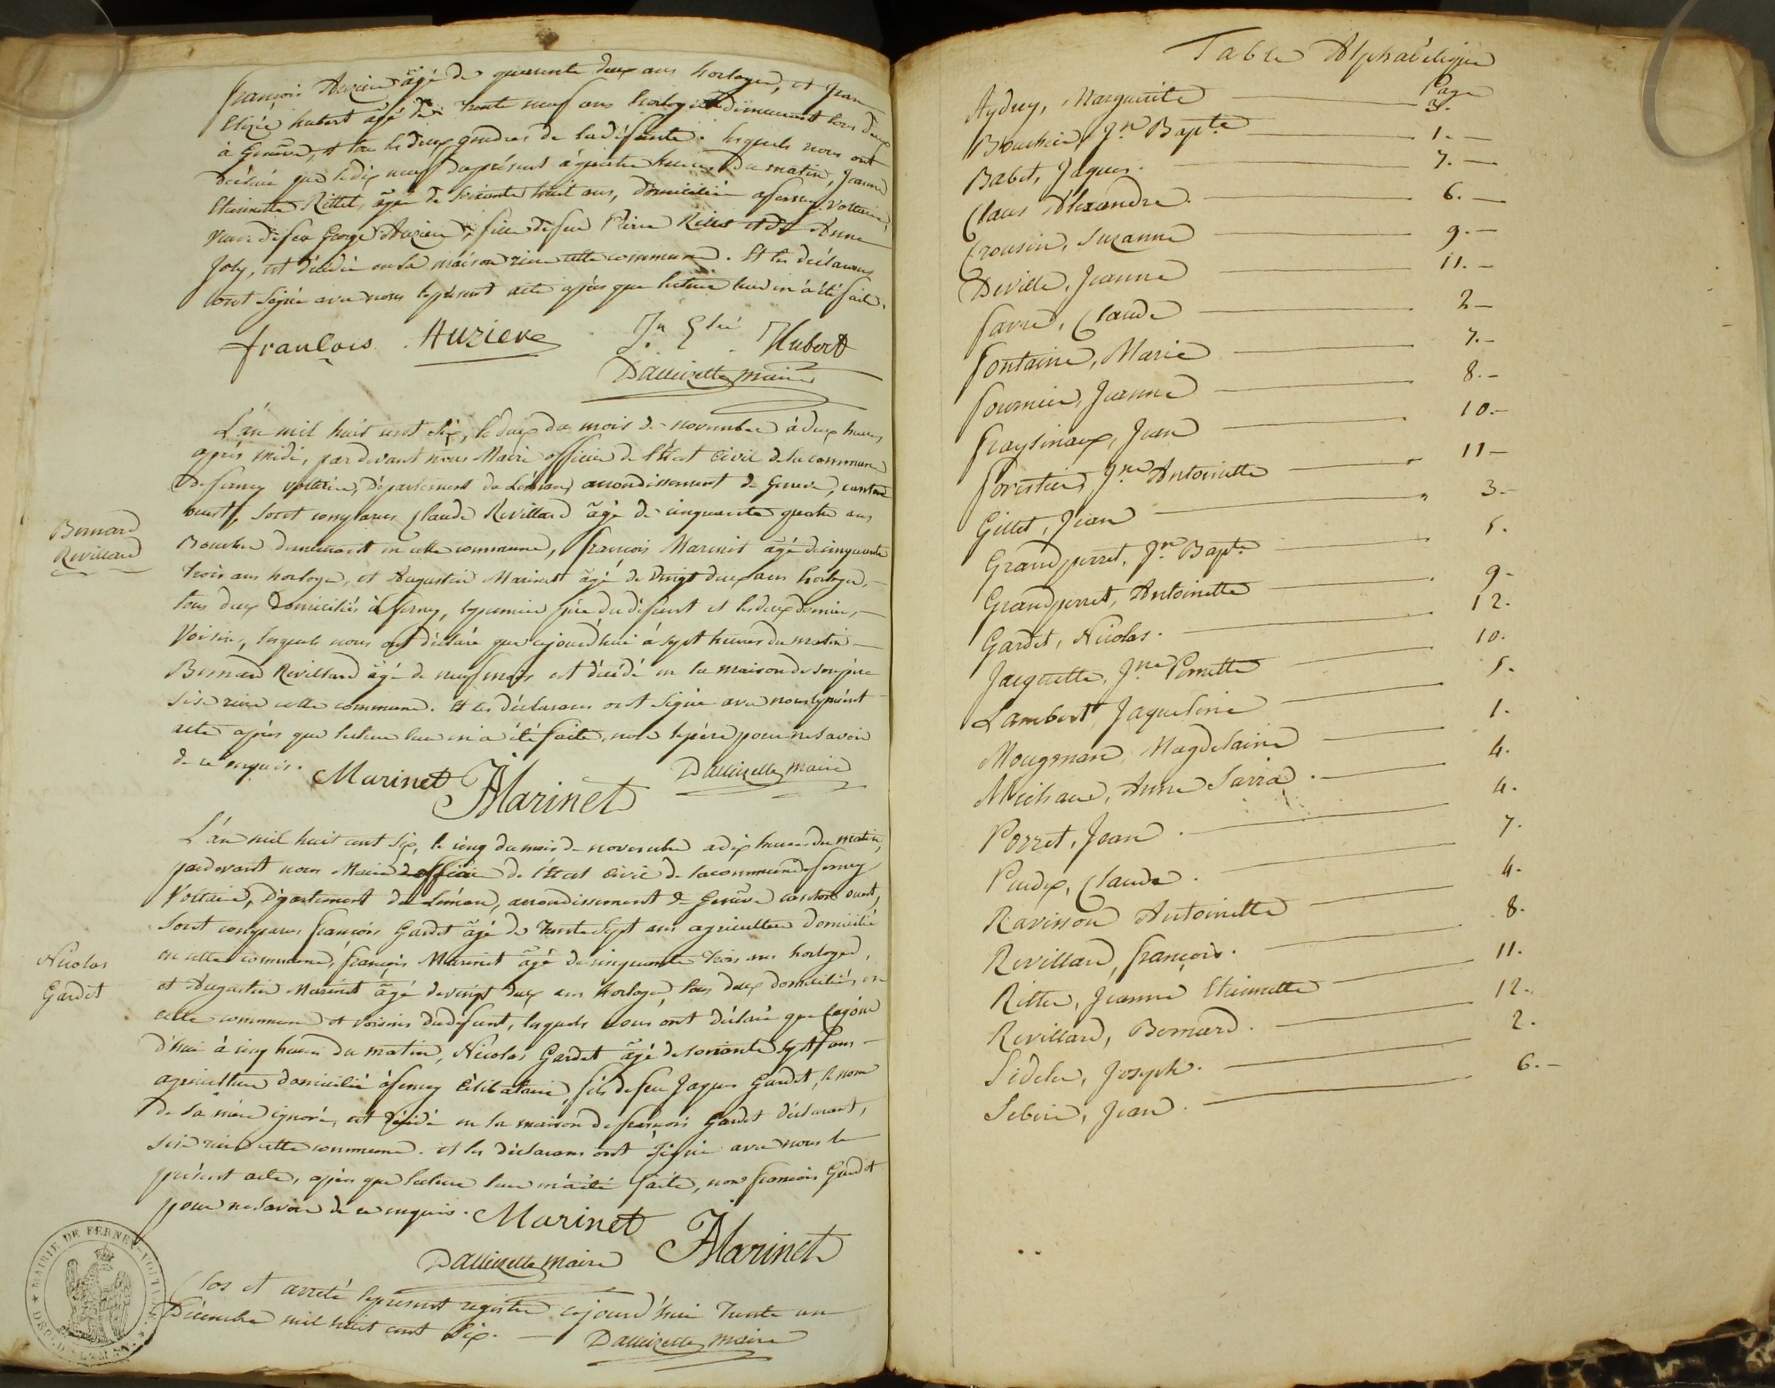 françois Auzière âgé de quarante deux ans horloger, et Jean
Elizée hubert âgé de trente neuf ans horloger demeurant tous deux
à Genève, et tous les deux gendres de la défunte. lesquels nous ont
déclaré que le dix neuf du présent à quatre heures du matin, Jeanne
Etiennette Rittet, âgée de soixante huit ans, domiciliée à ferney voltaire,
veuve de feu George Auzière, fille de feu Pierre Rittet et de Anne
Joly, est décédée en sa maison rière cette commune. Et les déclarans
ont signé avec nous le présent acte après que lecture leur en a été faite.
françois Auziere Jn Elié Hubert
Dallizette maire
L'an mil huit cent six, le deux du mois de novembre à deux heures
après midi, pardevant nous Maire officier de l'Etat Civil de la commune
de ferney voltaire, département du Léman, arrondissement de Geneve, canton
ouest, sont comparus Claude Revillard âgé de cinquante quatre ans
Boucher demeurant en cette commune, françois Marinet âgé de cinquante
trois ans horloger, et Augustin Marinet âgé de vingt deux ans horloger,
tous deux domiciliés à ferney, le premier père du défunt et les deux derniers
Voisins, lesquels nous ont déclaré que cejourd'hui à sept heures du matin
Bernard Revillard âgé de neuf mois est décédé en la maison de son père
sise rière cette commune. Et les déclarans ont signé avec nous le présent
acte après que lecture leur en a été faite, non le père pour ne savoir
de ce enquis.
Bernard
Revillard
Marinet JAMarinet Dallizette maire
L'an mil huit cent six, le cinq du mois de novembre à dix heures du matin,
pardevant nous Maire officier de l'Etat Civil de la commune de ferney
Voltaire, département du Léman, arrondissement de Genève canton ouest,
sont comparus françois Gardet âgé de trente sept ans agriculteur domicilié
en cette commune, françois Marinet âgé de cinquante trois ans horloger,
et Augustin Marinet âgé de vingt deux ans horloger, tous deux domiciliés en
cette commune et voisins du défunt, lesquels nous ont déclaré que cejour
d'hui à cinq heures du matin, Nicolas Gardet âgé de soixante sept ans
agriculteur domicilié à ferney célibataire, fils de feu Jaques Gardet, le nom
de sa mère ignoré, est décédé en la maison de françois Gardet déclarant,
sise rière cette commune. et les déclarans ont signé avec nous le
présent acte, après que lecture leur en a été faite, non françois Gardet
pour ne savoir de ce enquis.
Nicolas
Gardet
Marinet JAMarinet
Dallizette maire
Clos et arrêté le présent registre cejourd'hui trente un
Décembre mil huit cent six.
Dallizette maire
MAIRIE DE FERNEY-VOLTAIRE
Table Alphabétique
Page
Aydrey, Marguerite 3.
Bouchier, Jn Bapte 1.
Babet, Jaques. 7.
Claus Alexandre. 6.
Crousin, Suzanne 9.
Deville, Jeanne 11.
favre, Claude 2
fontaine, Marie 7.
fournier, Jeanne 8.
fraysinaux, Jean 10.
forestier, Jne Antoinette 11
Gillet, Jean 3.
Grandperret, Jn Bapte 5.
Grandperret, Antoinette 9.
Gardet, Nicolas. 12.
Jacquette, Jne Pernette 10.
Lambert Jaqueline 5.
Mougenare, Magdelaine 1.
Michaux, Anne Sarra. 4.
Porret, Jean. 4.
Pudex, Claude. 7.
Ravisson Antoinette 4.
Revillard, françois. 8.
Rittet, Jeanne Etiennette 11.
Revillard, Bernard. 12.
Sideler, Joseph. 2.
Sibire, Jean. 6.